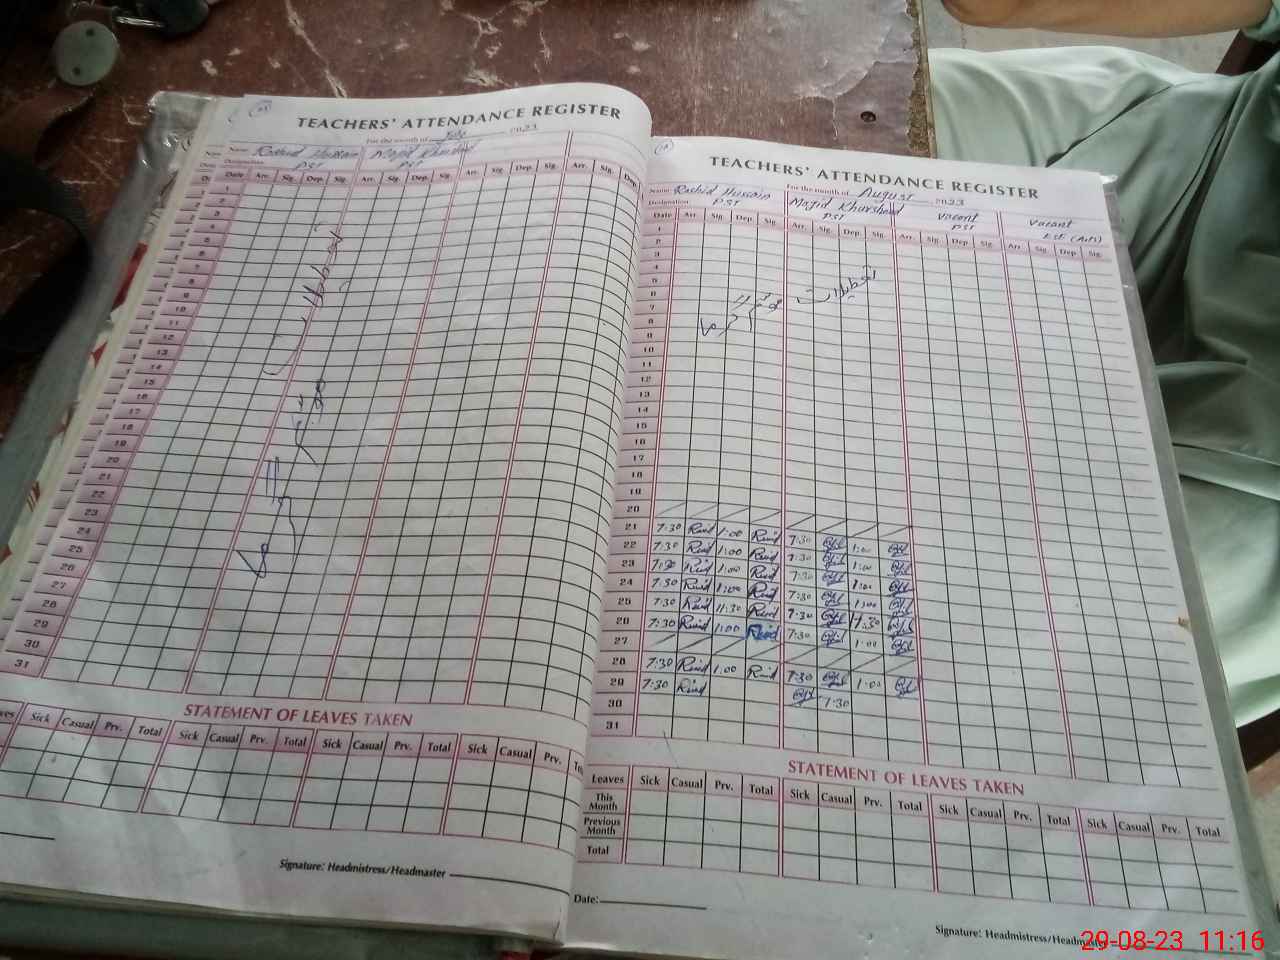 TEACHERS' ATTENDANCE REGISTER
For the month of July 2023
Name Rashid Hussain Majid Khurshid
Designation PST PST
Date Arr. Sig. Dep. Sig. Arr. Sig. Dep. Sig. Arr. Sig. Dep. Sig. Arr. Sig. Dep.
1
2
3
4
5
6
7
8
9
10
11
12
13
14
15
16
17
18
19
20
21
22
23
24
25
26
27
28
29
30
31
موسم گرما تعطیلات
STATEMENT OF LEAVES TAKEN
Sick Casual Prv. Total Sick Casual Prv. Total Sick Casual Prv. Total Sick Casual Prv.
Signature: Headmistress/Headmaster
TEACHERS' ATTENDANCE REGISTER
For the month of August 2023
Name Rashid Hussain Majid Khurshid Vacant Vacant
Designation PST PST PST
Date Arr. Sig. Dep. Sig. Arr. Sig. Dep. Sig. Arr. Sig. Dep. Sig. Arr. Sig. Dep. Sig.
1
2
3
4
5
6
7
8
9
10
11
12
13
14
15
16
17
18
19
20
موسم گرما تعطیلات
21 7:30 1:00 7:30 1:00
22 7:30 1:00 7:30 1:00
23 7:30 1:00 7:30 1:00
24 7:30 1:00 7:30 1:00
25 7:30 11:30 7:30 11:30
26 7:30 1:00 7:30 1:00
27
28 7:30 1:00 7:30 1:00
29 7:30 7:30
30
31
STATEMENT OF LEAVES TAKEN
Leaves Sick Casual Prv. Total Sick Casual Prv. Total Sick Casual Prv. Total Sick Casual Prv. Total
This Month
Previous Month
Total
Date:
Signature: Headmistress/Headmaster
29-08-23 11:16